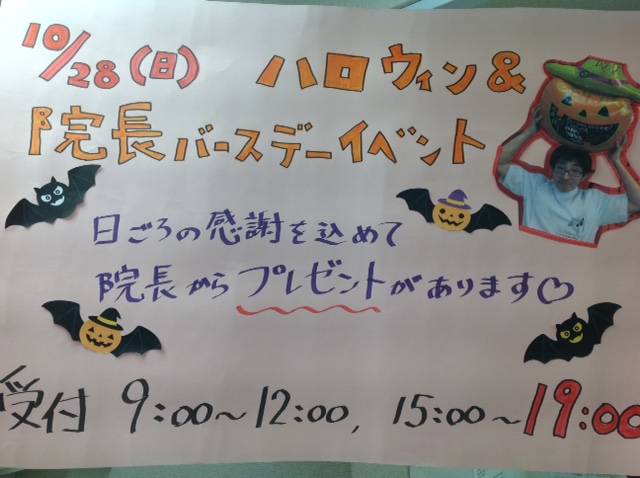 10/28(日) ハロウィン&
院長バースデーイベント
日ごろの感謝を込めて
院長からプレゼントがあります♡
受付 9:00~12:00, 15:00~19:00